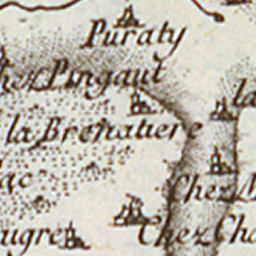 Puraty
hez Pingaut
la
la Brenatiere
ac
Chez M
augre
Chez Cha